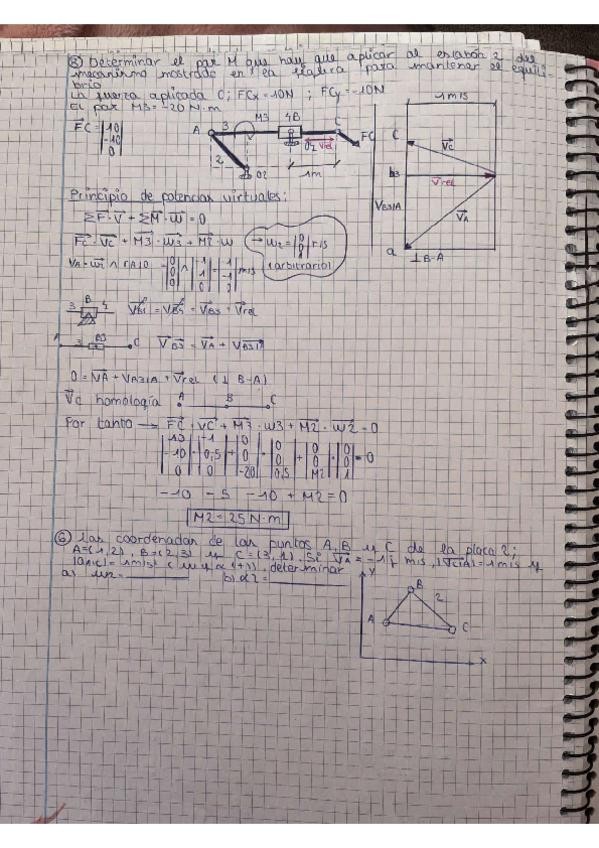 ⑧ Determinar el par M que hay que aplicar al eslabón 2 del
mecanismo mostrado en la figura para mantener el equili-
brio
La fuerza aplicada C; FCx = 10N ; FCy = -10N
El par M3 = -20 N·m
FC = |10
-10
0
A 3 M3 4B C FC
2 O2 Vrel
1m
1 m/s
C Vc
b3 Vrel
VB3/A VA
a ⊥B-A
Principio de potencias virtuales:
ΣF·V + ΣM·W = 0
FC·VC + M3·W3 + M2·W → W2 = |0 0 1| r/s
(arbitrario)
|0 0 0| ∧ |-1 1 0| = |-1 -1 0| m/s
3 B 4
A 3 B3 C VB3 = VA + VB3/A
0 = VA + VB3/A + Vrel (⊥ B-A)
Vc homología A B C
Por tanto → FC·VC + M3·W3 + M2·W2 = 0
|10 -10 0| · |-1 0,5 0| + |0 0 -20| · |0 0 0,5| + |0 0 M2| · |0 0 1| = 0
-10 - 5 - 10 + M2 = 0
M2 = 25 N·m
⑥ Las coordenadas de los puntos A, B y C de la placa 2;
A=(1,2), B=(2,3) y C=(3,1). Si VA = -1 j m/s, |VC/A| = 1 m/s y
determinar
a) W2 = b) α2 =
y
B
2
A C
x